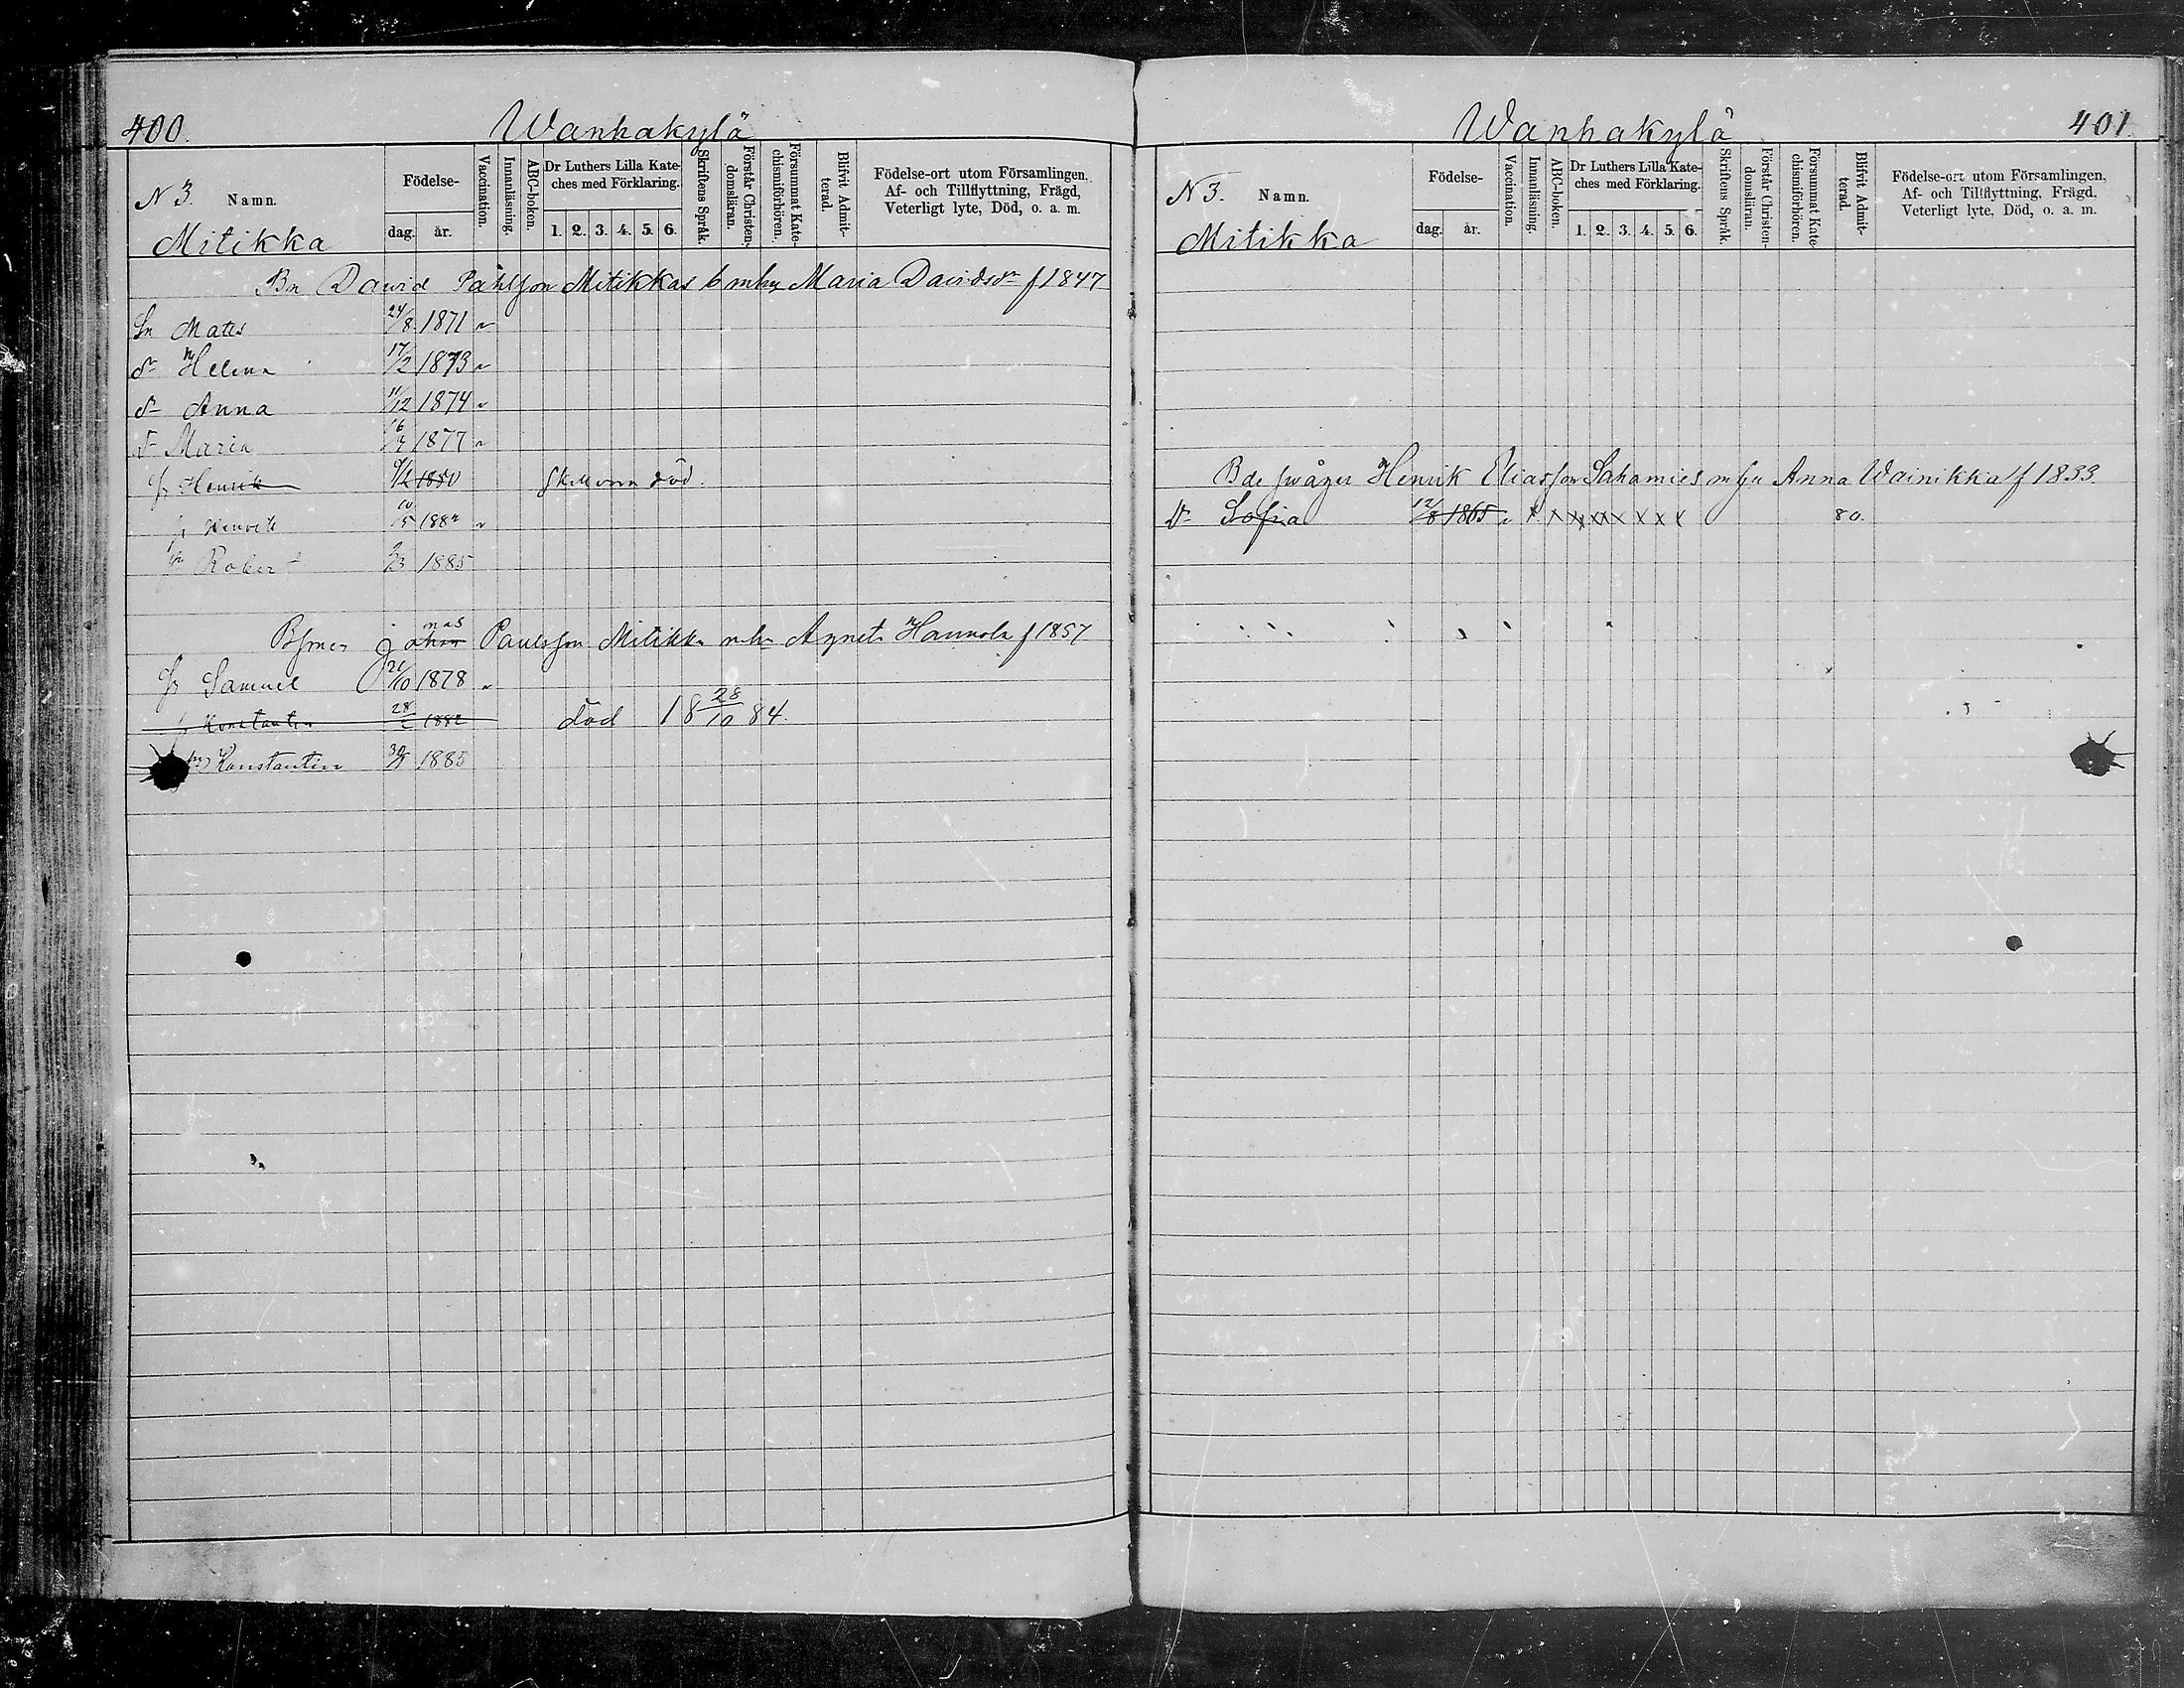 400.
Wanhakylä
N 3. Namn.
Mitikka
Födelse-
dag. år.
Vaccination.
Innanläsning.
ABC-boken.
Dr Luthers Lilla Kate-
ches med Förklaring.
1. 2. 3. 4. 5. 6.
Skriftens Språk.
Förstår Christen-
domsläran.
Försummat Kate-
chismiförhören.
Blifvit Admit-
terad.
Födelse-ort utom Församlingen,
Af- och Tillflyttning, Frägd,
Veterligt lyte, Död, o. a. m.
Bn David Påhlson Mitikkas mhu Maria Davidsdr f 1847
Sn Mats 24/8 1871
dr Helena 17/2 1873
dr Anna 11/12 1874
dr Maria 16/7 1877
Henrik 1880 död.
Henrik 1882
Robert 1885
Johan mas Paulsson Mitikka mhu Agneta Hannola f 1857
Samuel 21/10 1878
Konstantin 28/2 1882 död 18 28/10 84.
Konstantin 30/8 1885
Wanhakylä
401
N 3. Namn.
Mitikka
Födelse-
dag. år.
Vaccination.
Innanläsning.
ABC-boken.
Dr Luthers Lilla Kate-
ches med Förklaring.
1. 2. 3. 4. 5. 6.
Skriftens Språk.
Förstår Christen-
domsläran.
Försummat Kate-
chismiförhören.
Blifvit Admit-
terad.
Födelse-ort utom Församlingen,
Af- och Tillflyttning, Frägd,
Veterligt lyte, Död, o. a. m.
Bds swåger Henrik Eliasson Sahamies mhu Anna Wainikka f 1833.
dr Sofia 12/8 1865 x x x x x x x x x 80.